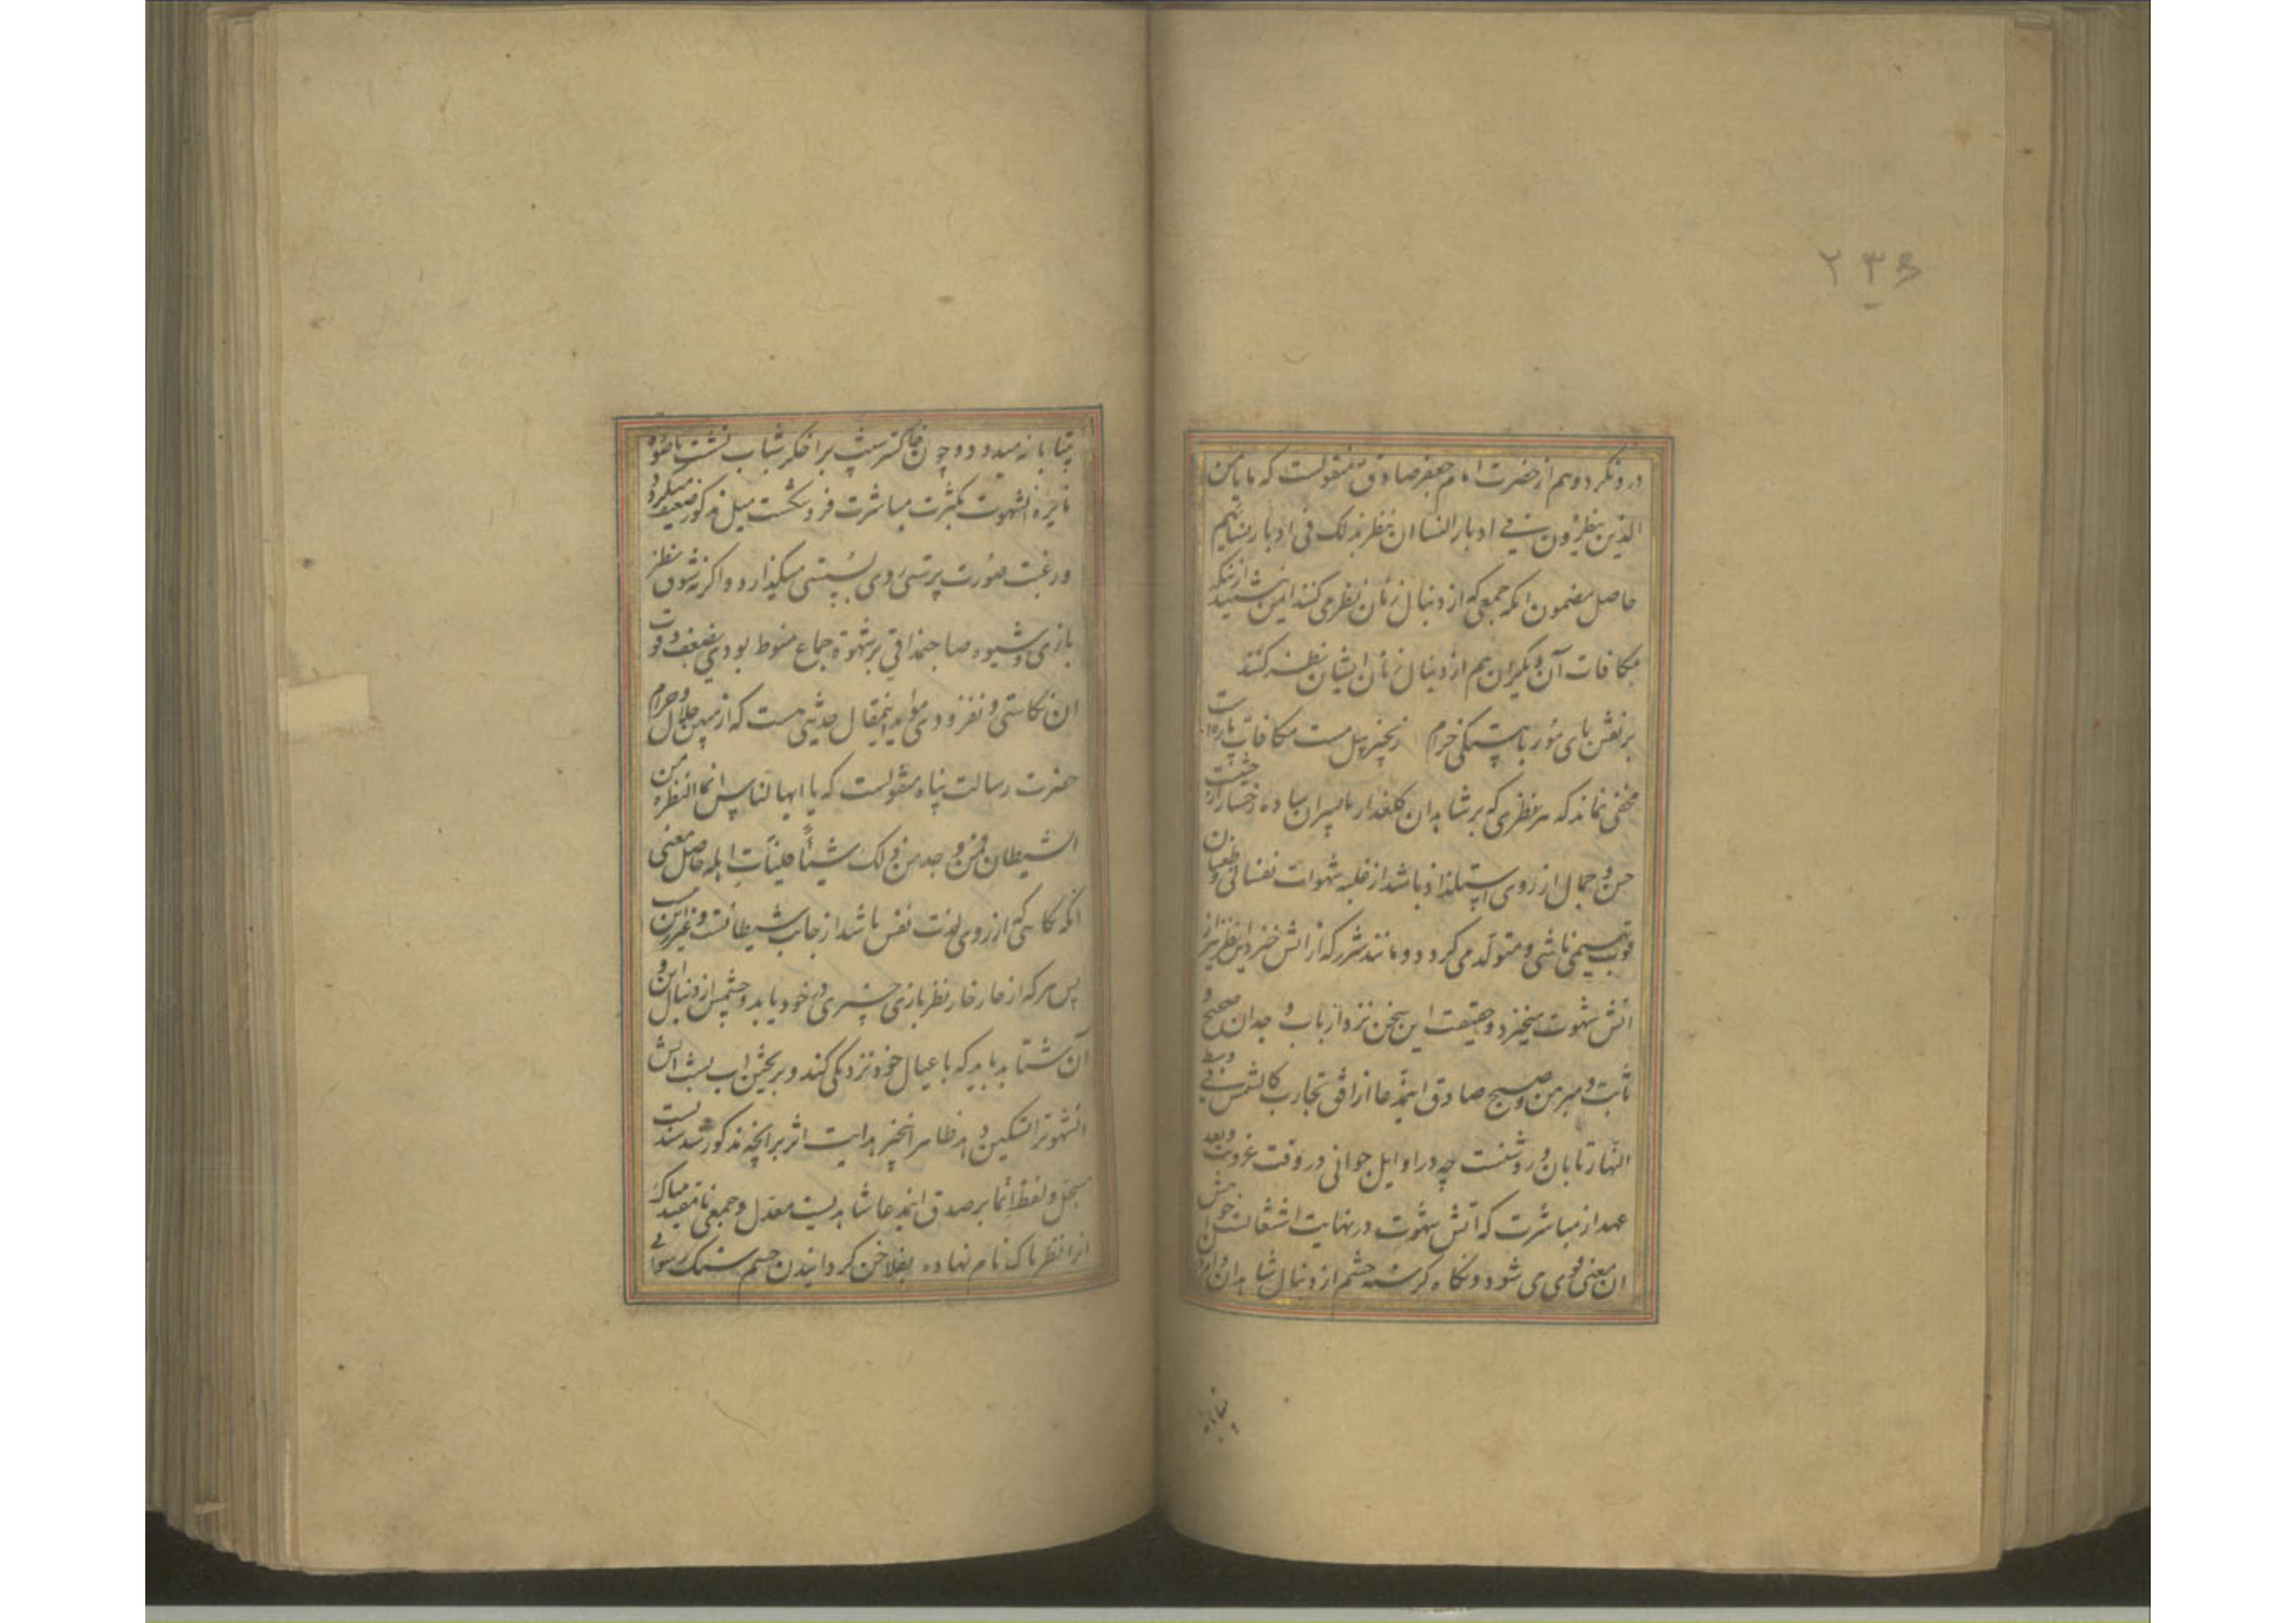 ۲۳۶
درونکرد وهم از حضرت امام جعفر صادق منقولست که ما یامن
الذین ینظرون فی ادبار النسا ان ینظر بذلک فی ادبار نسایهم
حاصل مضمون انکه جمعی که از دنبال زنان نظر می کنند ایمن نیستند از انکه
بمکافات آن دیکران هم از دنبال زنان ایشان نظر کنند
بر نقش پای مور باهستکی خرام زنجیر پیل مست مکافات پاره است
مخفی نماند که هر نظری که بر شاهدان کلعذار یا پسران ساده رخسار از حیثیت
حسن و جمال از روی استلذاذ باشد از غلبه شهوات نفسانی و طغیان
قوت بهیمی ناشی و متولد می کردد و مانند شرر که از اتش خیزد این نظر نیز از
اتش شهوت میخیزد و حقیقت این سخن نزد ارباب وجدان صحیح و
ثابت و مبرهن و صبح صادق این مدعا از افق تجارب کالشمس فی وسط
النهار تابان و روشنست چه در اوایل جوانی در وقت عزوبت و بعد
عهد از مباشرت که آتش شهوت در نهایت اشتعالست خواهش
ان معنی قوی می شود و نکاه کرسنه چشم از دنبال شاهدان و امرد
بیتابانه
بیتابانه میدود و چون خاکستر شیب بر اخکر شباب نشست یا ضوء
نایره الشهوت بکثرت مباشرت فرو نکشت میل مذکور ضعیف میکردد
و رغبت صورت پرستی روی به پستی میکذارد و اکر نه شوق نظر
بازی و شیوه صاحبمذاقی بر شهوة جماع منوط بودی بضعف و قوت
ان نکاستی و نفزودی موید اینمقال حدیثی هست که از مبین حلال و حرام
حضرت رسالت پناه منقولست که یا ایها الناس انما النظرة من
الشیطان فمن وجد من ذلک شیئاً فلیأت اهله حاصل معنی
انکه نکاهی که از روی لذت نفس باشد از جانب شیطانست و غیر این نیست
پس هر که از خار خار نظر بازی چیزی در خود یابد و چشمش از دنبال این و
آن شتابد باید که با عیال خود نزدیکی کند و بریختن اب پشت اتش
شهوترا تسکین دهد ظاهر انخبر هدایت اثر بر انچه مذکور شد سندیست
مسجل و لفظ انما بر صدق این مدعا شاهدیست معدل و جمعی نامقید مباک
انرا نظر پاک نام نهاده بفلاخن کردانیدن چشم سنک رسوائی